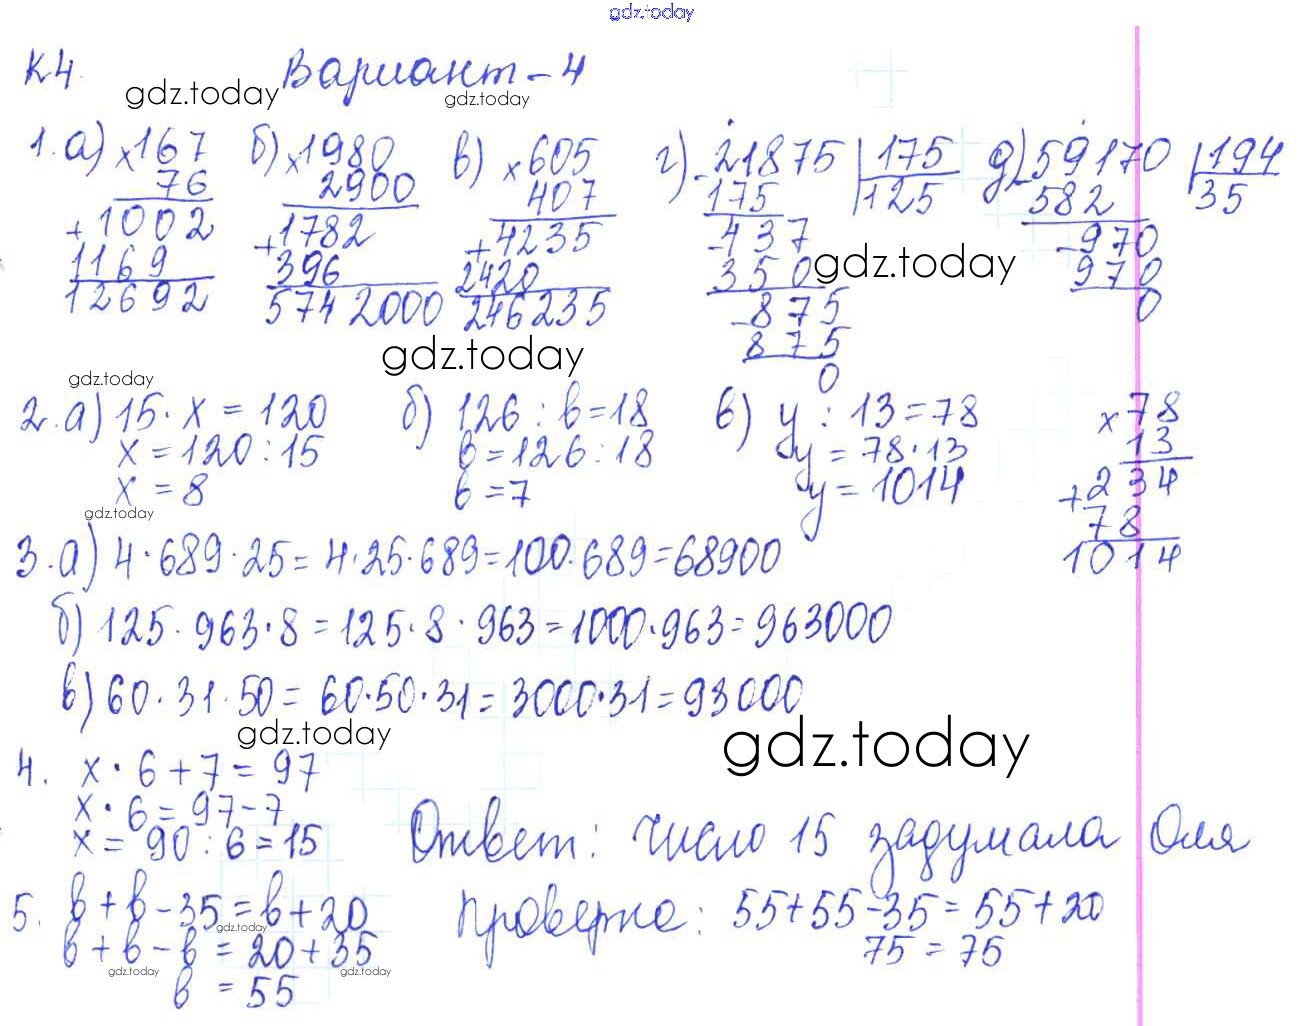 gdz.today
К4. Вариант - 4
gdz.today gdz.today
1. а) ×167 б) ×1980 в) ×605 г) -21875 |175 д) -59170 |194
76 2900 407 175 125 582 35
+1002 +1782 +4235 -437 -970
1169 396 2420 350 970
12692 5742000 246235 -875 0
gdz.today
875
0
gdz.today
gdz.today
2. а) 15 · x = 120 б) 126 : в = 18 в) y : 13 = 78 ×78
x = 120 : 15 в = 126 : 18 y = 78 · 13 13
x = 8 в = 7 y = 1014 +234
78
1014
gdz.today
3. а) 4 · 689 · 25 = 4 · 25 · 689 = 100 · 689 = 68900
б) 125 · 963 · 8 = 125 · 8 · 963 = 1000 · 963 = 963000
в) 60 · 31 · 50 = 60 · 50 · 31 = 3000 · 31 = 93000
gdz.today gdz.today
4. x · 6 + 7 = 97
x · 6 = 97 - 7
x = 90 : 6 = 15 Ответ: число 15 задумала Оля
5. в + в - 35 = в + 20 Проверка: 55 + 55 - 35 = 55 + 20
gdz.today
в + в - в = 20 + 35 75 = 75
gdz.today gdz.today
в = 55